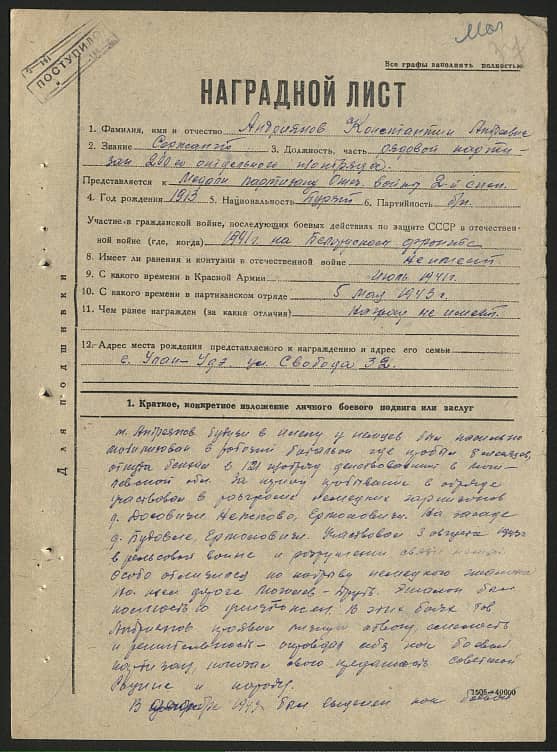 ПОСТУПИЛО
Все графы заполнять полностью
НАГРАДНОЙ ЛИСТ
1. Фамилия, имя и отчество Андриянов Константин
2. Звание Сержант 3. Должность, часть рядовой парти-
зан 200го отдельного п/отряда
Представляется к Медали партизану Отеч. войны 2-й степ.
4. Год рождения 1913 5. Национальность бурят 6. Партийность б/п.
Участие в гражданской войне, последующих боевых действиях по защите СССР в отечествен-
ной войне (где, когда) 1941г на Белорусском фронте
8. Имеет ли ранения и контузии в отечественной войне Не имеет
9. С какого времени в Красной Армии июль 1941г.
10. С какого времени в партизанском отряде 5 мая 1943г.
11. Чем ранее награжден (за какия отличия) Наград не имеет.
12. Адрес места рождения представляемого к награждению и адрес его семьи
г. Улан-Удэ ул. Свобода 32.
Для подшивки
1. Краткое, конкретное изложение личного боевого подвига или заслуг
т. Андриянов будучи в плену у немцев был насильно
мобилизован в рабочий батальон где пробыл 8 месяцев,
откуда бежал в 121 п/отряд действовавший в моги-
левской обл. За время пребывания в отряде
участвовал в разгроме немецких гарнизонов
д. Ермоловичи. На западе
д. Ермоловичи. Участвовал 3 августа 1943г
в рельсовой войне и разрушении связи
Особо отличился по подрыву немецкого эшелона
На жел. дороге Могилев - Друть. Эшелон был
полностью уничтожен. В этих боях тов
Андриянов проявил личную отвагу, смелость
и решительность - оправдал себя как боевой
партизан, показал свою преданность советской
Родине и народу.
В 1943г. был как боевой
1505-40000